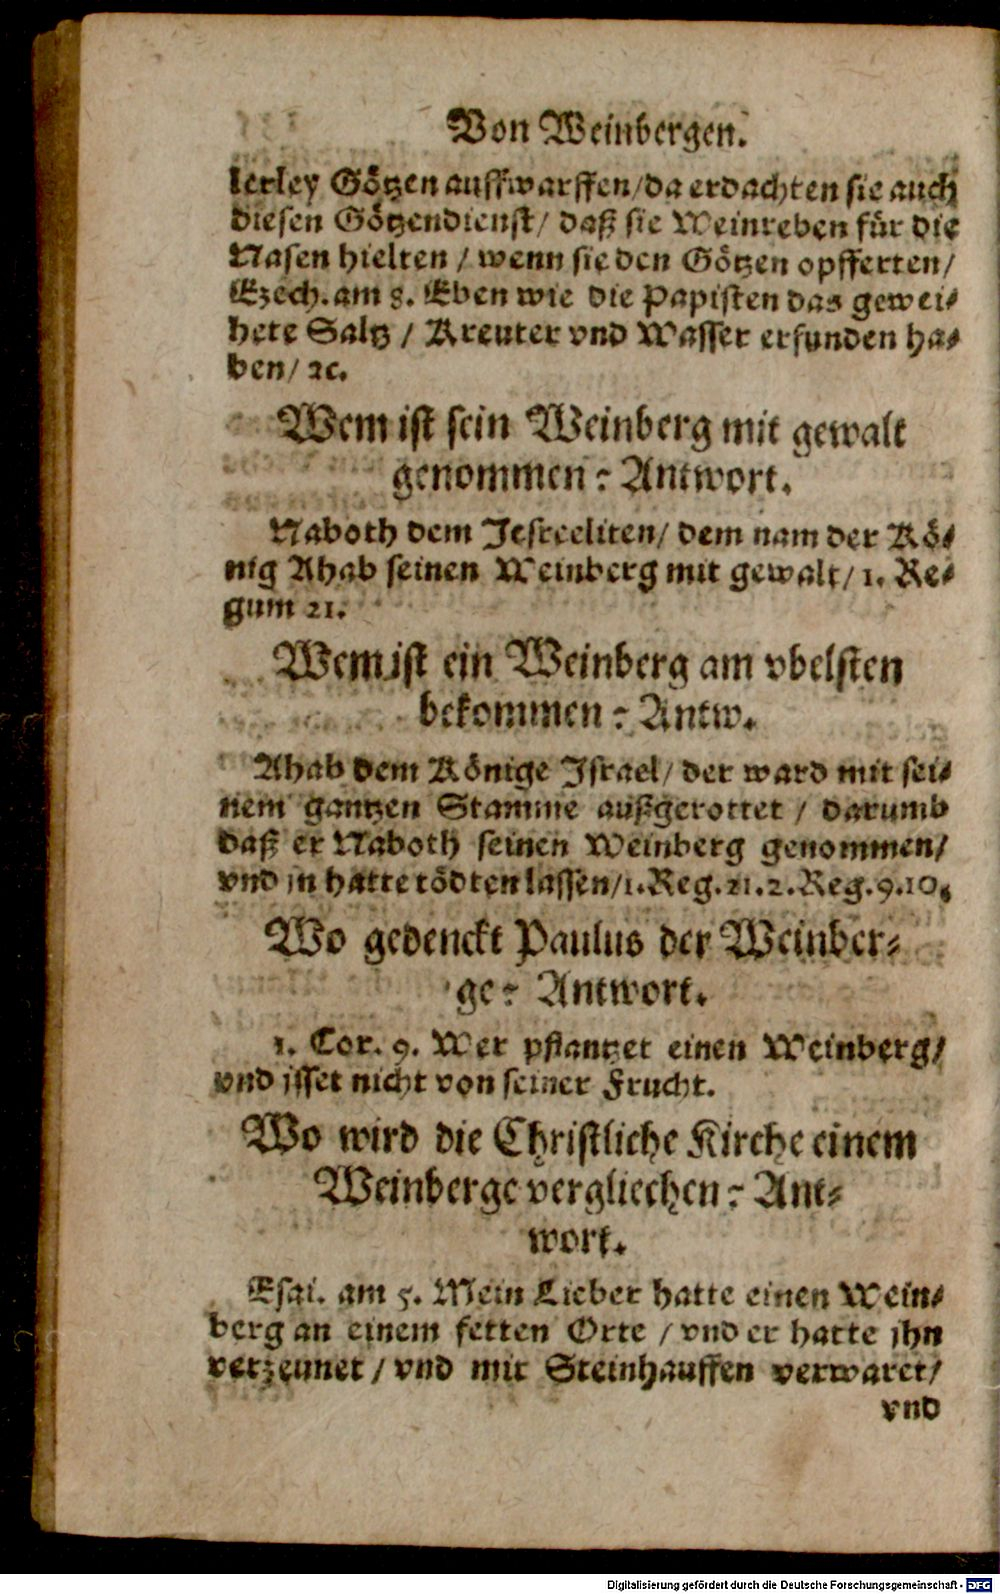 Von Weinbergen.
lerley Götzen auffwarffen/ da erdachten sie auch
diesen Götzendienst/ daß sie Weinreben für die
Nasen hielten / wenn sie den Götzen opfferten/
Ezech. am 8. Eben wie die Papisten das gewei-
hete Saltz / Kreuter vnd Wasser erfunden ha-
ben/ ꝛc.
Wem ist sein Weinberg mit gewalt
genommen? Antwort.
Naboth dem Jesreeliten/ dem nam der Kö-
nig Ahab seinen Weinberg mit gewalt/ 1. Re-
gum 21.
Wem ist ein Weinberg am vbelsten
bekommen? Antw.
Ahab dem Könige Israel/ der ward mit sei-
nem gantzen Stamme außgerottet / darumb
daß er Naboth seinen Weinberg genommen/
vnd jn hatte tödten lassen/ 1. Reg. 21. 2. Reg. 9. 10.
Wo gedenckt Paulus der Weinber-
ge? Antwort.
1. Cor. 9. Wer pflantzet einen Weinberg/
vnd jsset nicht von seiner Frucht.
Wo wird die Christliche Kirche einem
Weinberge vergliechen? Ant-
wort.
Esai. am 5. Mein Lieber hatte einen Wein-
berg an einem fetten Orte / vnd er hatte jhn
verzeunet / vnd mit Steinhauffen verwaret/
vnd
Digitalisierung gefördert durch die Deutsche Forschungsgemeinschaft - DFG